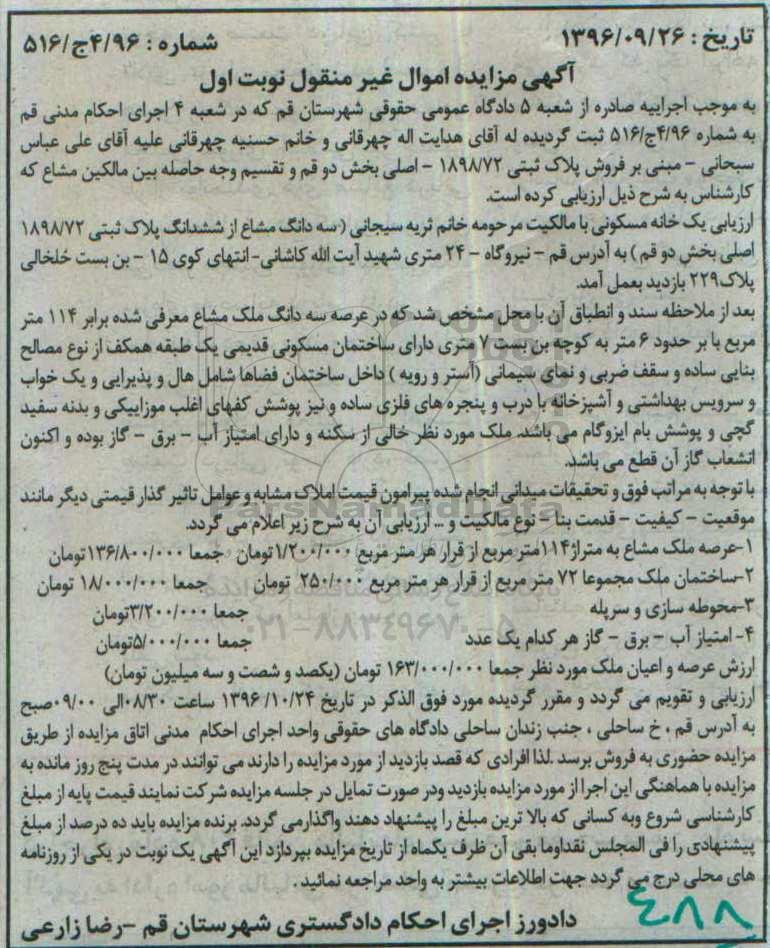 تاریخ : ۱۳۹۶/۰۹/۲۶
شماره : ۴/۹۶ج/۵۱۶
آگهی مزایده اموال غیر منقول نوبت اول
به موجب اجراییه صادره از شعبه ۵ دادگاه عمومی حقوقی شهرستان قم که در شعبه ۴ اجرای احکام مدنی قم
به شماره ۴/۹۶ج/۵۱۶ ثبت گردیده له آقای هدایت اله چهرقانی و خانم حسنیه چهرقانی علیه آقای علی عباس
سبحانی - مبنی بر فروش پلاک ثبتی ۱۸۹۸/۷۲ - اصلی بخش دو قم و تقسیم وجه حاصله بین مالکین مشاع که
کارشناس به شرح ذیل ارزیابی کرده است.
ارزیابی یک خانه مسکونی با مالکیت مرحومه خانم ثریه سیجانی ( سه دانگ مشاع از ششدانگ پلاک ثبتی ۱۸۹۸/۷۲
اصلی بخش دو قم ) به آدرس قم - نیروگاه - ۲۴ متری شهید آیت الله کاشانی- انتهای کوی ۱۵ - بن بست خلخالی
پلاک۲۲۹ بازدید بعمل آمد.
بعد از ملاحظه سند و انطباق آن با محل مشخص شد که در عرصه سه دانگ ملک مشاع معرفی شده برابر ۱۱۴ متر
مربع با بر حدود ۶ متر به کوچه بن بست ۷ متری دارای ساختمان مسکونی قدیمی یک طبقه همکف از نوع مصالح
بنایی ساده و سقف ضربی و نمای سیمانی (آستر و رویه ) داخل ساختمان فضاها شامل هال و پذیرایی و یک خواب
و سرویس بهداشتی و آشپزخانه با درب و پنجره های فلزی ساده و نیز پوشش کفهای اغلب موزاییکی و بدنه سفید
گچی و پوشش بام ایزوگام می باشد. ملک مورد نظر خالی از سکنه و دارای امتیاز آب - برق - گاز بوده و اکنون
انشعاب گاز آن قطع می باشد.
با توجه به مراتب فوق و تحقیقات میدانی انجام شده پیرامون قیمت املاک مشابه و عوامل تاثیر گذار قیمتی دیگر مانند
موقعیت - کیفیت - قدمت بنا - نوع مالکیت و ... ارزیابی آن به شرح زیر اعلام می گردد.
۱-عرصه ملک مشاع به متراژ۱۱۴متر مربع از قرار هر متر مربع ۱/۲۰۰/۰۰۰تومان جمعا ۱۳۶/۸۰۰/۰۰۰تومان
۲-ساختمان ملک مجموعا ۷۲ متر مربع از قرار هر متر مربع ۲۵۰/۰۰۰ تومان جمعا ۱۸/۰۰۰/۰۰۰ تومان
۳-محوطه سازی و سرپله جمعا ۳/۲۰۰/۰۰۰تومان
۴- امتیاز آب - برق - گاز هر کدام یک عدد جمعا ۵/۰۰۰/۰۰۰تومان
ارزش عرصه و اعیان ملک مورد نظر جمعا ۱۶۳/۰۰۰/۰۰۰ تومان (یکصد و شصت و سه میلیون تومان)
ارزیابی و تقویم می گردد و مقرر گردیده مورد فوق الذکر در تاریخ ۱۳۹۶/۱۰/۲۴ ساعت ۰۸/۳۰الی ۰۹/۰۰صبح
به آدرس قم ، خ ساحلی ، جنب زندان ساحلی دادگاه های حقوقی واحد اجرای احکام مدنی اتاق مزایده از طریق
مزایده حضوری به فروش برسد .لذا افرادی که قصد بازدید از مورد مزایده را دارند می توانند در مدت پنج روز مانده به
مزایده با هماهنگی این اجرا از مورد مزایده بازدید ودر صورت تمایل در جلسه مزایده شرکت نمایند قیمت پایه از مبلغ
کارشناسی شروع وبه کسانی که بالا ترین مبلغ را پیشنهاد دهند واگذارمی گردد. برنده مزایده باید ده درصد از مبلغ
پیشنهادی را فی المجلس نقداوما بقی آن ظرف یکماه از تاریخ مزایده بپردازد این آگهی یک نوبت در یکی از روزنامه
های محلی درج می گردد جهت اطلاعات بیشتر به واحد مراجعه نمائید .
دادورز اجرای احکام دادگستری شهرستان قم -رضا زارعی
۴۸۸
ParsNamadData
۰۲۱-۸۸۳۴۹۶۷۰-۵